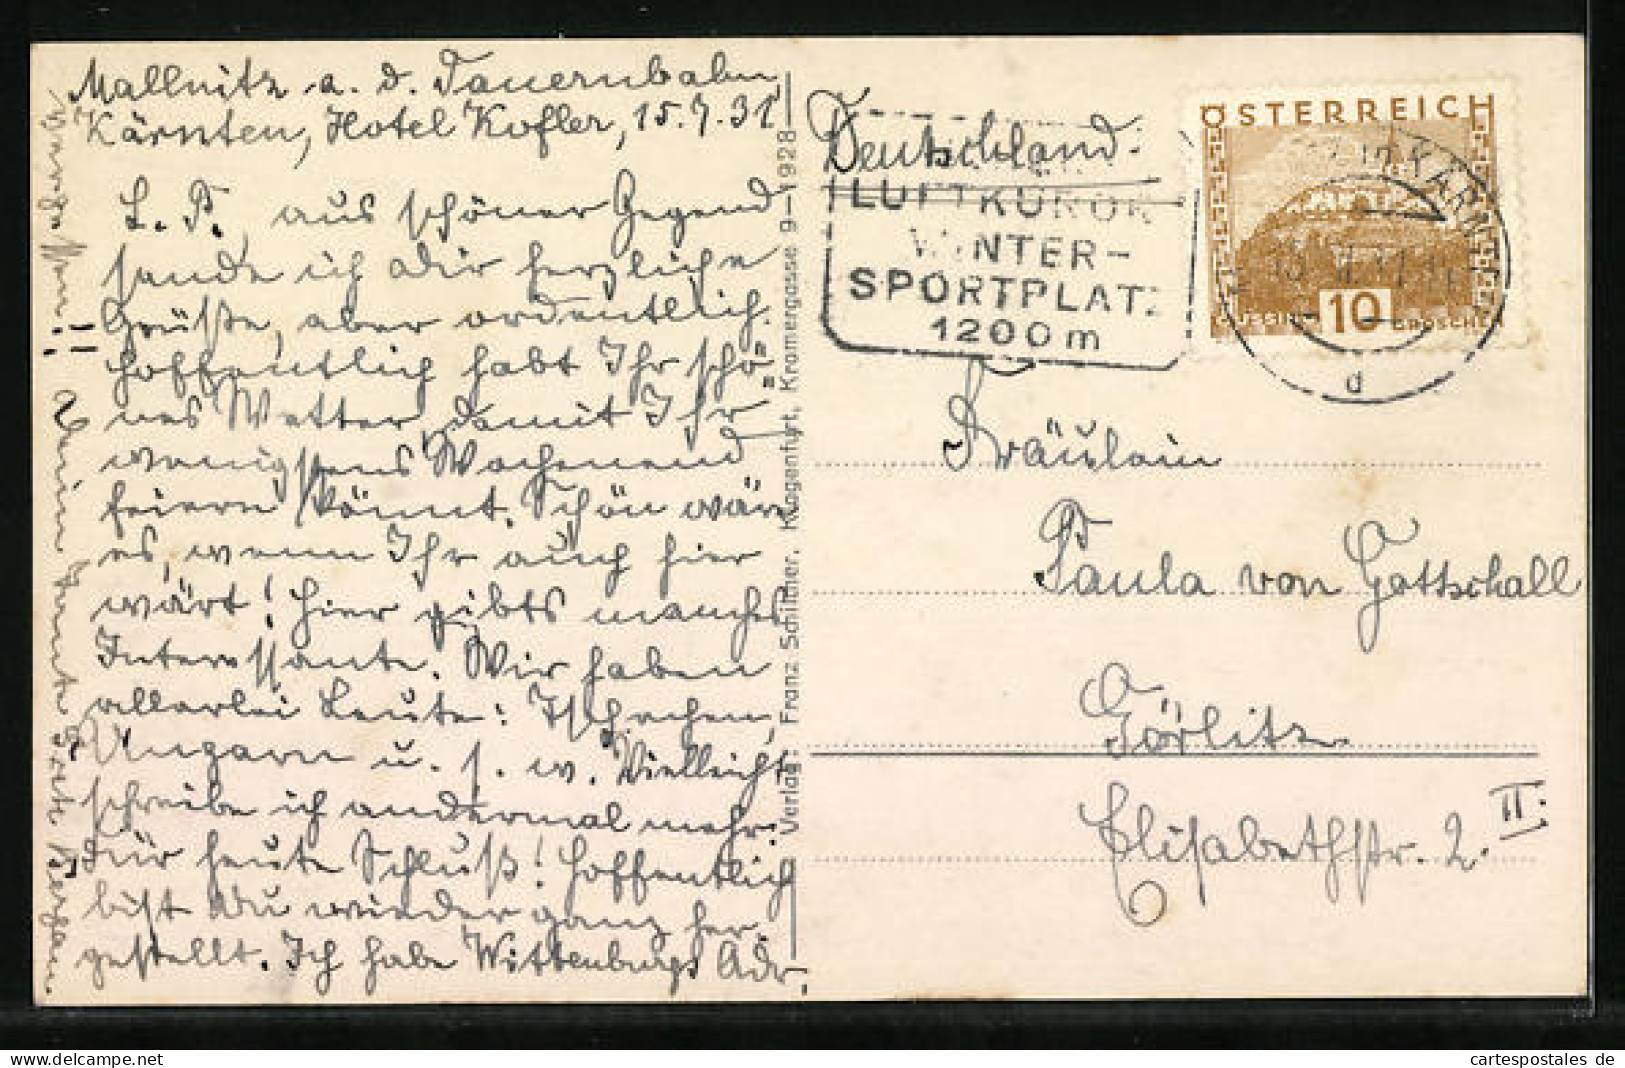 Mallnitz a. d. Tauernbahn,
Kärnten, Hotel Kofler, 15.7.31
L. P., aus schöner Gegend
sende ich Dir herzliche
Grüße, aber ordentlich.
Hoffentlich habt Ihr schö=
nes Wetter, damit Ihr
wenigstens Wochenend
feiern könnt. Schön wäre
es, wenn Ihr auch hier
wärt! Hier gibts manches
Interessante. Wir haben
allerlei Leute: Tschechen,
Ungarn u. s. w. Vielleicht
schreibe ich andermal mehr.
Für heute Schluß! Hoffentlich
bist Du wieder ganz her=
gestellt. Ich habe Wittenburgs Adr.
vergessen!!
Deine Tante Grete
Verlag: Franz Schilcher, Klagenfurt, Kramergasse 9—1928
Deutschland.
LUFTKURORT
WINTER-
SPORTPLATZ
1200 m
ÖSTERREICH
GÜSSING 10 GROSCHEN
KÄRNTEN
d
Fräulein
Paula von Gottschall
Görlitz
Elisabethstr. 2. II.
cartespostales de